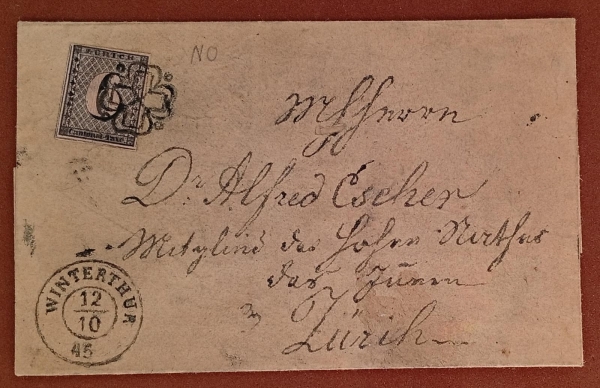 ZÜRICH
6
Cantonal-Taxe.
NO
MHHerrn
Dr Alfred Escher
Mitglied des Hohen Rathes
des Innern
Zürich
WINTERTHUR
12
10
45